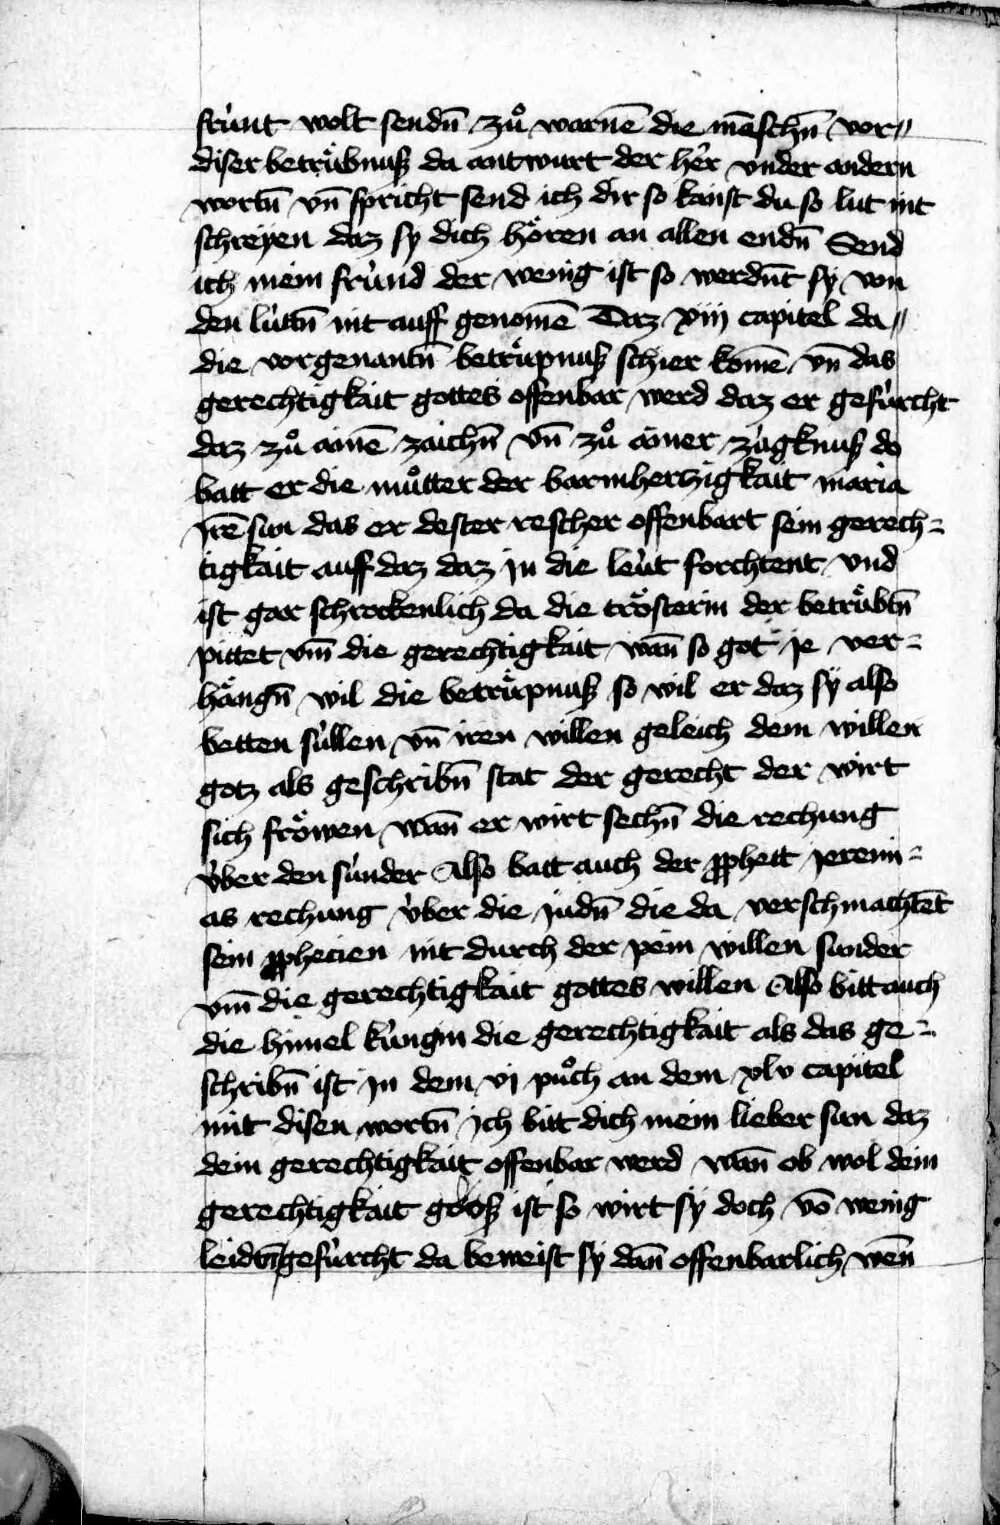 frúnt wolt sendn̄ zů warnē die mēschn̄ vor〃
diser betrůbnuß da antwurt der hèr vnder andern
wortn̄ vn̄ spricht send ich dir so kanst du so lut nit
schreyen daz sy dich hören an allen endn̄ Send
ich mein frúnd der wenig ist so werdn̄t sy von
den lútn̄ nit auff genomē Daz xiij capitel da〃
die vorgenantn̄ betrůpnuß schier komē vn̄ das
gerechtigkait gottes offenbar werd daz er gefúrcht
daz zů ainē zaichn̄ vn̄ zů ainer zúgknuß do
batt er die můtter der barmherzigkait maria
jrē sun das er dester rescher offenbart sein gerech⸗
tigkait auff daz daz jn die leút forchtent vnd
ist gar schrockenlich da die trösterin der betrůbtn̄
pittet vm̄ die gerechtigkait wan̄ so got je ver⸗
hängn̄ wil die betrůpnuß so wil er daz sÿ also
betten súllen vn̄ iren willen geleich dem willen
gotz als geschribn̄ stat der gerecht der wirt
sich fröwen wan̄ er wirt sechn̄ die rechung
v́ber den súnder Also batt auch der ꝓphett jeremi⸗
as rechung v́ber die judn̄ die da verschmachtēt
sein ꝓphecien nit durch der pein willen sunder
vm̄ die gerechtigkait gottes willen Also bitt auch
die himel kúngin die gerechtigkait als das ge⸗
schribn̄ ist jn dem vj půch an dem xlv capitel
mit disen wortn̄ Jch bitt dich mein lieber sun daz
dein gerechtigkait offenbar werd wan̄ ob wol dein
gerechtigkait groß ist so wirt sÿ doch vō wenig
leidn̄ gefúrcht da beweist sy dan̄ offenbarlich wēn